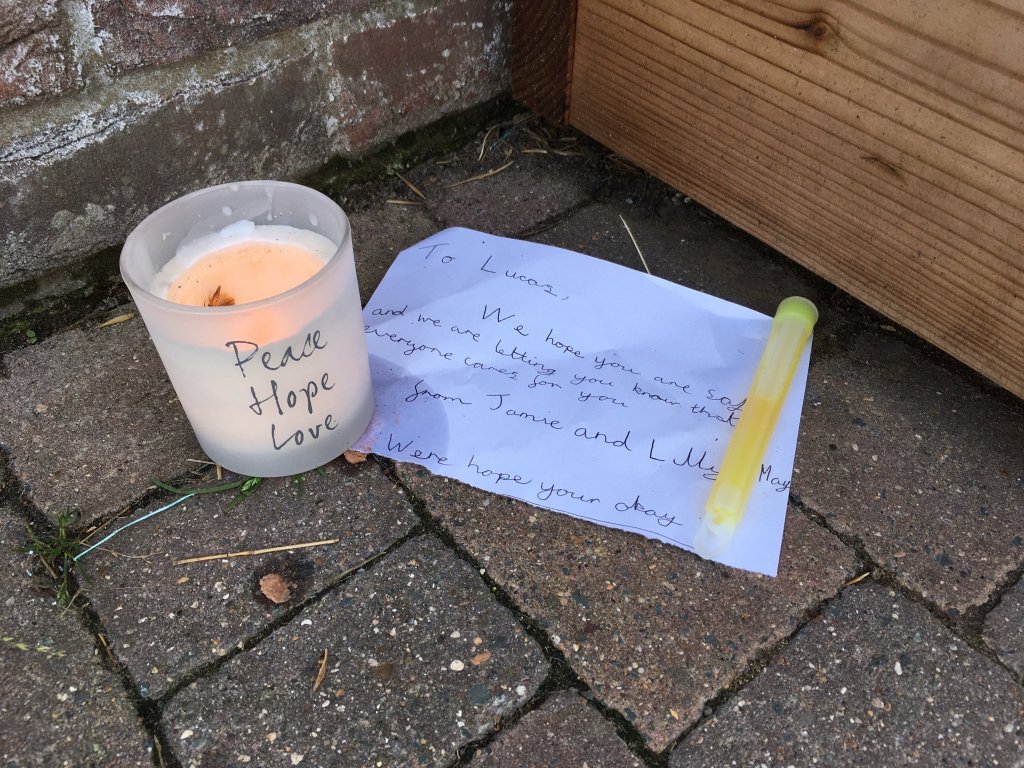 Peace
Hope
Love
To Lucas,
We hope you are saf
and we are letting you know that
everyone cares for you
from Jamie and Lilly May
Were hope your okay